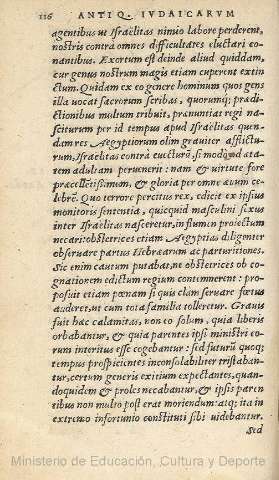 116 ANTIQ. IVDAICARVM
agentibus ut Israelitas nimio labore perderent,
nostris contra omnes difficultates eluctari co-
nantibus. Exortum est deinde aliud quiddam,
cur genus nostrum magis etiam cuperent extin
ctum. Quidam ex eo genere hominum quos gens
illa uocat sacrorum scribas, quorumq; prædi-
ctionibus multum tribuit, prænuntiat regi na-
sciturum per id tempus apud Israelitas quen-
dam res Aegyptiorum olim grauiter afflictu-
rum, Israelitas contrà euecturũ, si modò ad æta-
tem adultam peruenerit: nam & uirtute fore
præcellētissimum, & gloria per omne æuum ce-
lebrē. Quo terrore percitus rex, edicit ex ipsius
monitoris sententia, quicquid masculini sexus
inter Israelitas nasceretur, in flumen proiectum
necari: obstetrices etiam Aegyptias diligenter
obseruare partus Hebræarum ac parturitiones.
Sic enim cautum putabat, ne obstetrices ob co-
gnationem edictum regium contemnerent: pro-
posuit etiam pœnam si quis clàm seruare fœtus
auderet, ut cum tota familia tolleretur. Grauis
fuit hæc calamitas, non eo solùm, quia liberis
orbabantur, & quia parentes ipsi ministri eo-
rum interitus esse cogebantur: sed futurũ quoq;
tempus prospicientes inconsolabiliter tristaban-
tur, certum generis exitium expectantes, quan-
doquidem & proles necabantur, & ipsis paren
tibus non multo pòst erat moriendum. atq; ita in
extremo infortunio constituti sibi uidebantur.
Sed
Ministerio de Educación, Cultura y Deporte